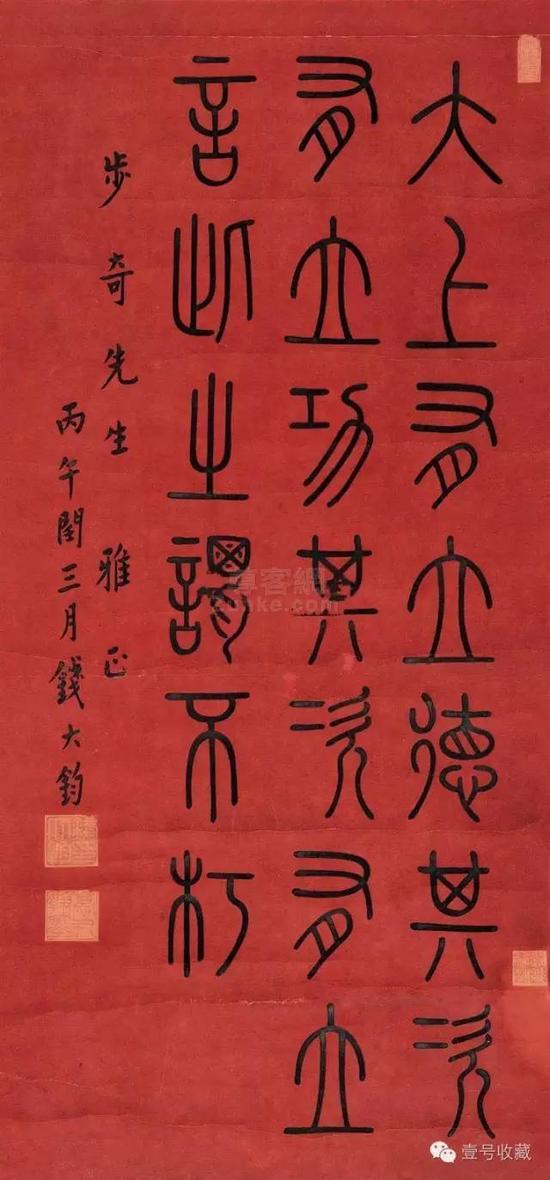 大上有立德其次
有立功其次有立
言此之謂不朽
步奇先生 雅正
丙午閏三月錢大鈞
尊客網
zunke.com
壹号收藏